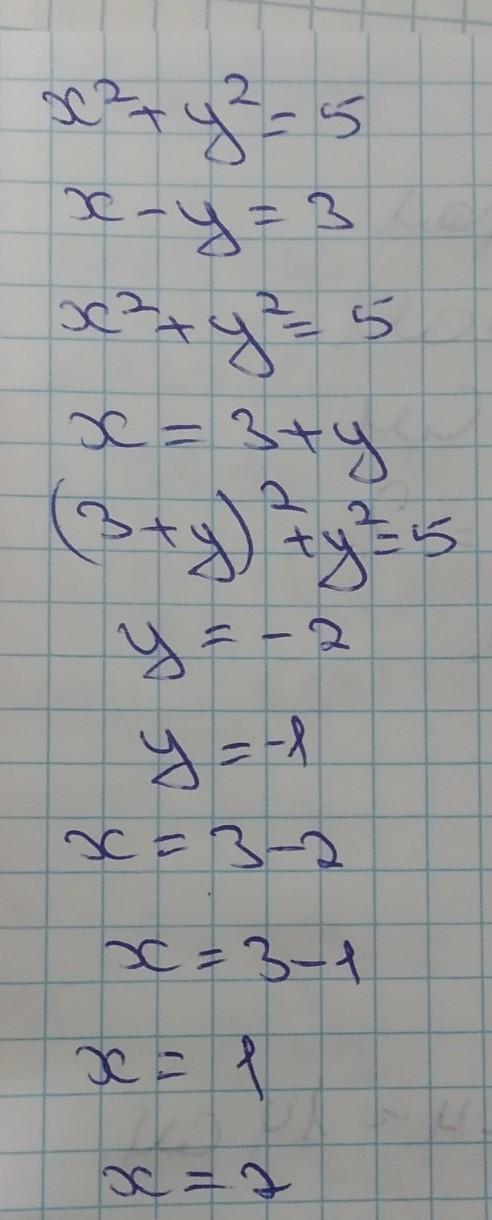 x² + y² = 5
x - y = 3
x² + y² = 5
x = 3 + y
(3 + y)² + y² = 5
y = -2
y = -1
x = 3 - 2
x = 3 - 1
x = 1
x = 2